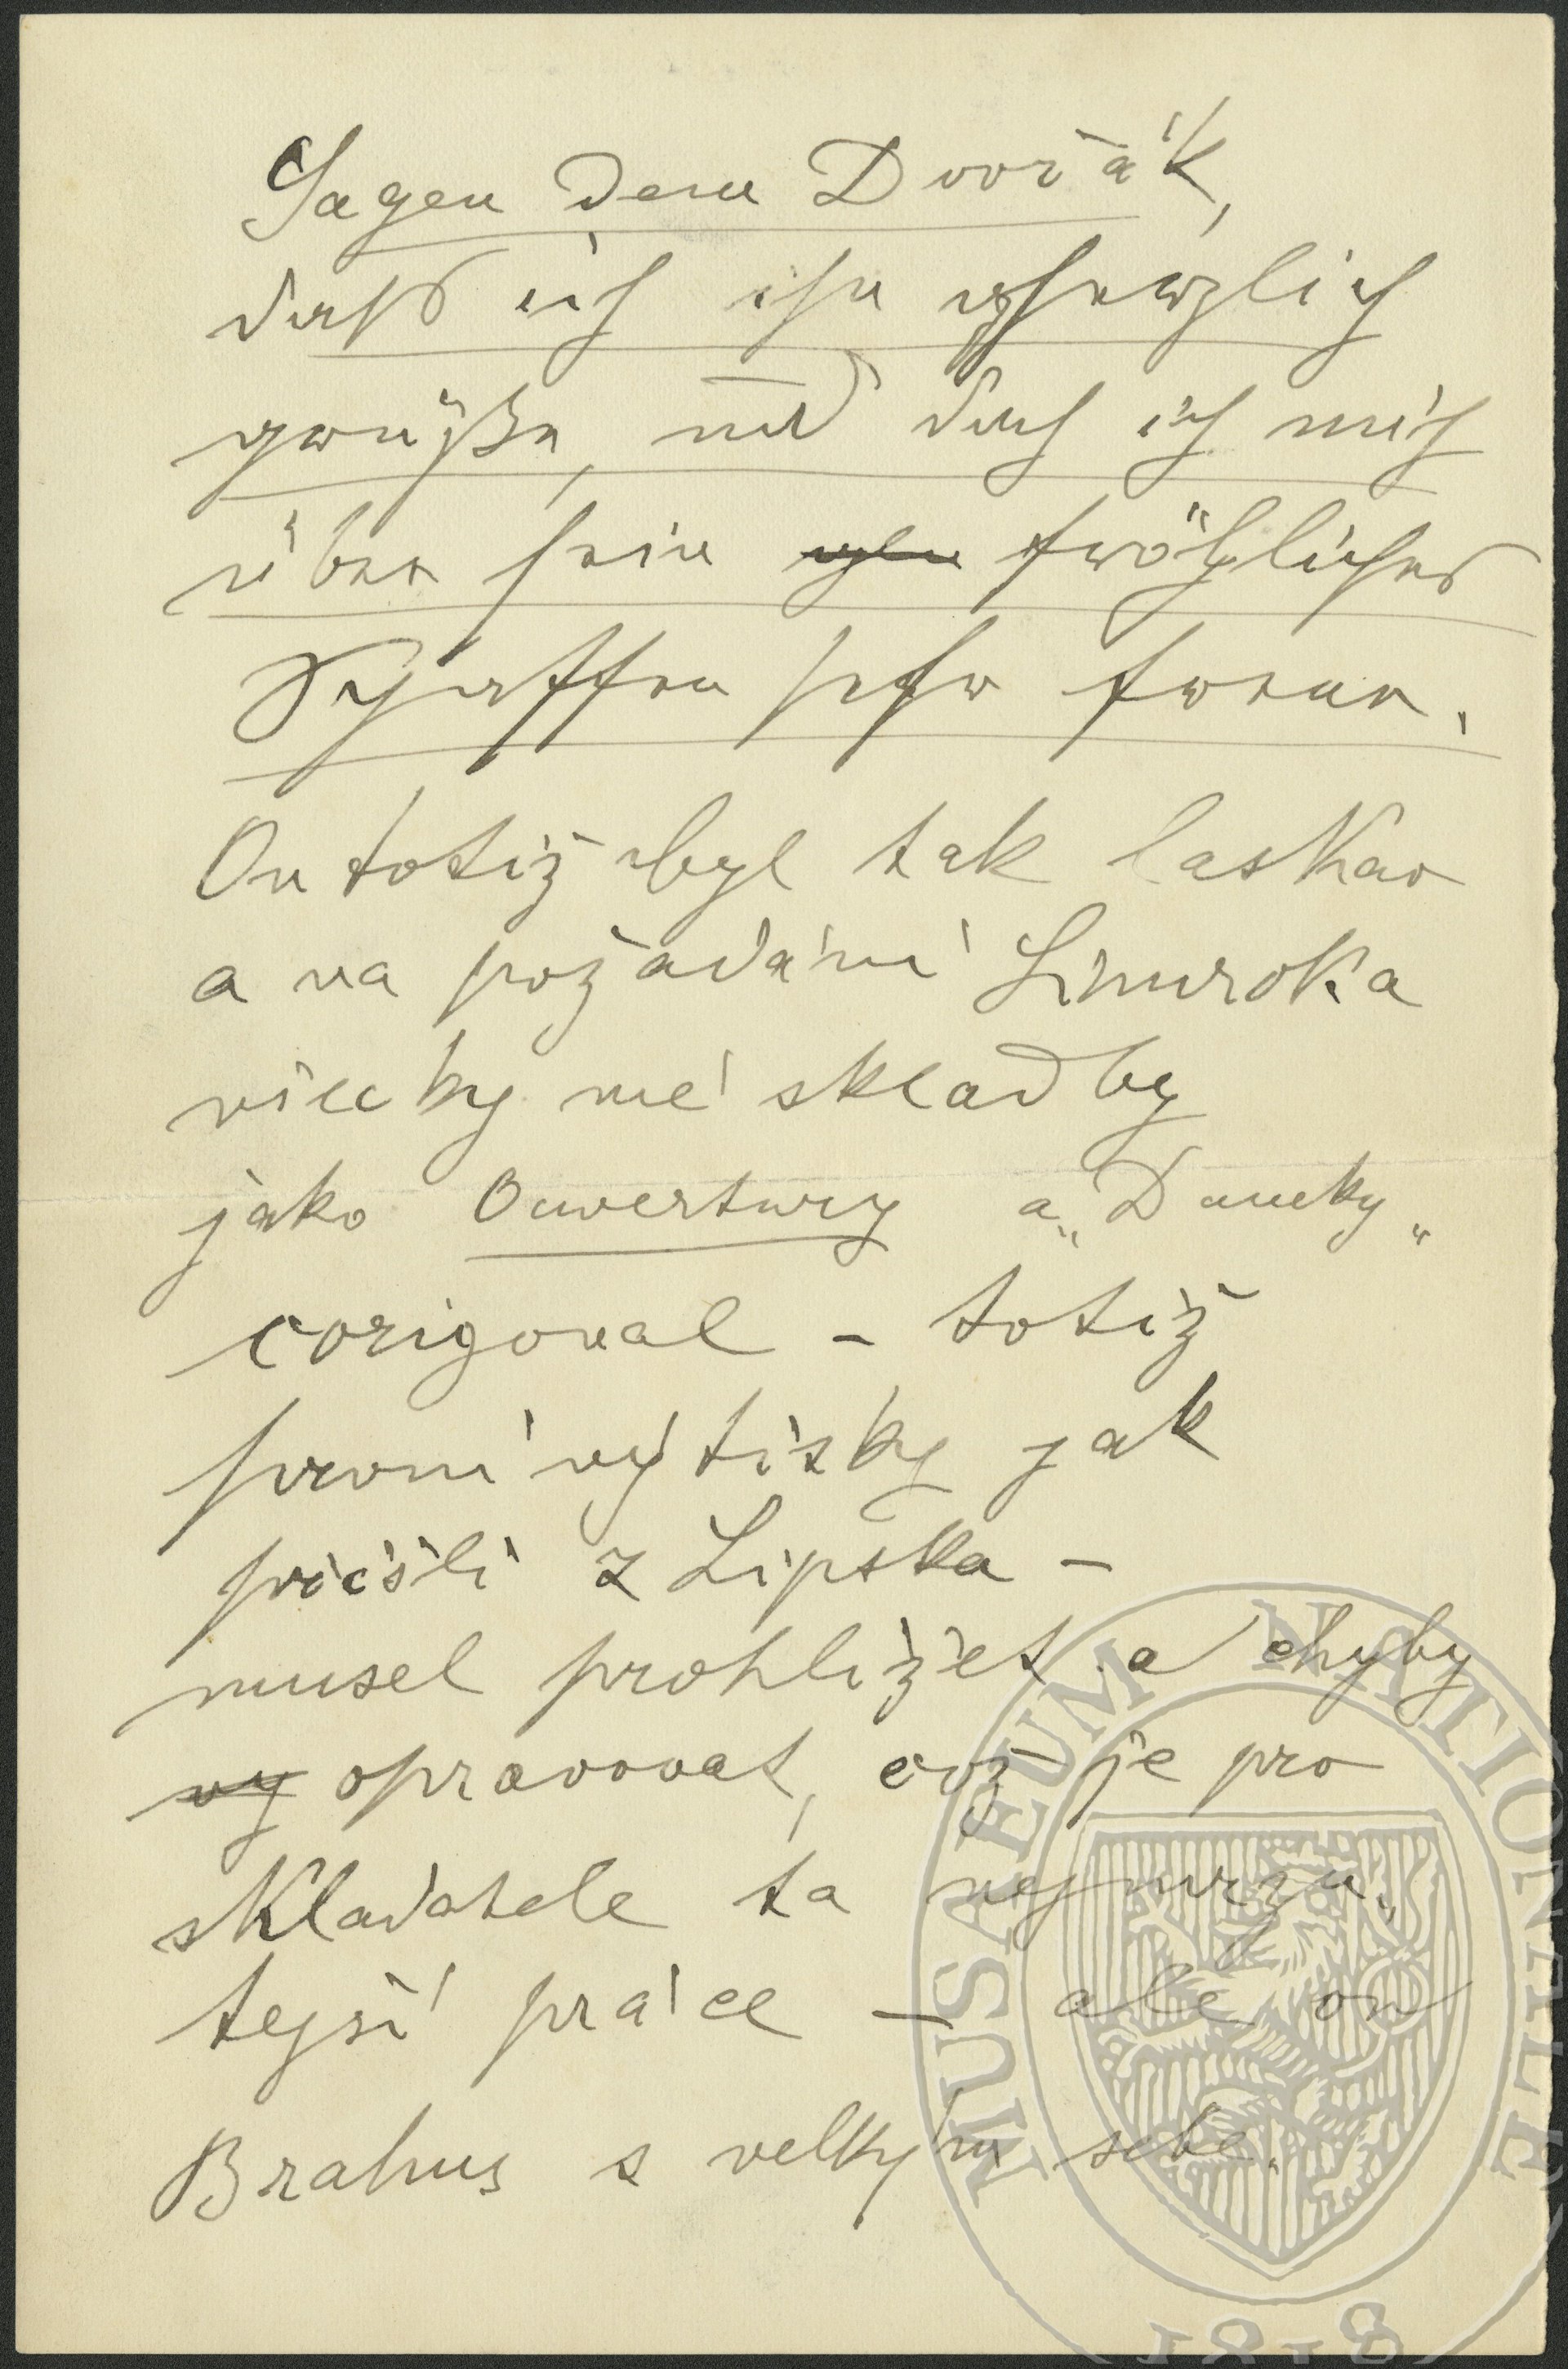 Sagen dem Dvořák,
daß ich ihn herzlich
grüße, und daß ich mich
über sein fröhliches
Schaffen sehr freue.
On totiž byl tak laskav
a na požádání Simroka
všecky mé skladby
jako Ouvertury a „Dumky„
corigoval – totiž
první výtisky jak
přišli z Lipska –
musel prohlížet a chyby
vy opravovat, což je pro
skladatele ta nejmrzu„
tejší práce – ale on
Brahms s velkým sebe„
MUSAEUM NATIONALE
1818